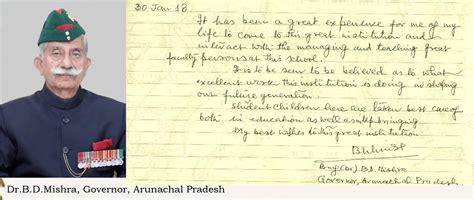 30 Jan 18.
It has been a great experience for me of my
life to come to this great institution and
interact with the managing and teaching great
faculty persons at this school.
It is to be seen to be believed as to what
excellent work this institution is doing in shaping
our future generation.
Student children here are taken best care of
both in education as well as upbringing
My best wishes to this great institution.
Brig (Dr.) B.D. Mishra
Governor, Arunachal Pradesh
Dr.B.D.Mishra, Governor, Arunachal Pradesh